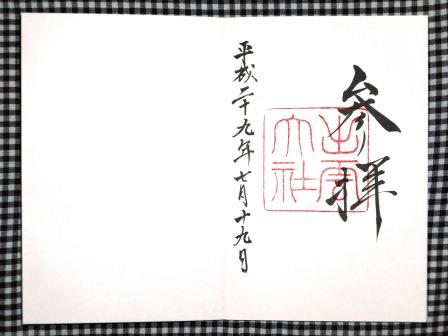 参拝
出雲
大社
平成二十九年七月十九日